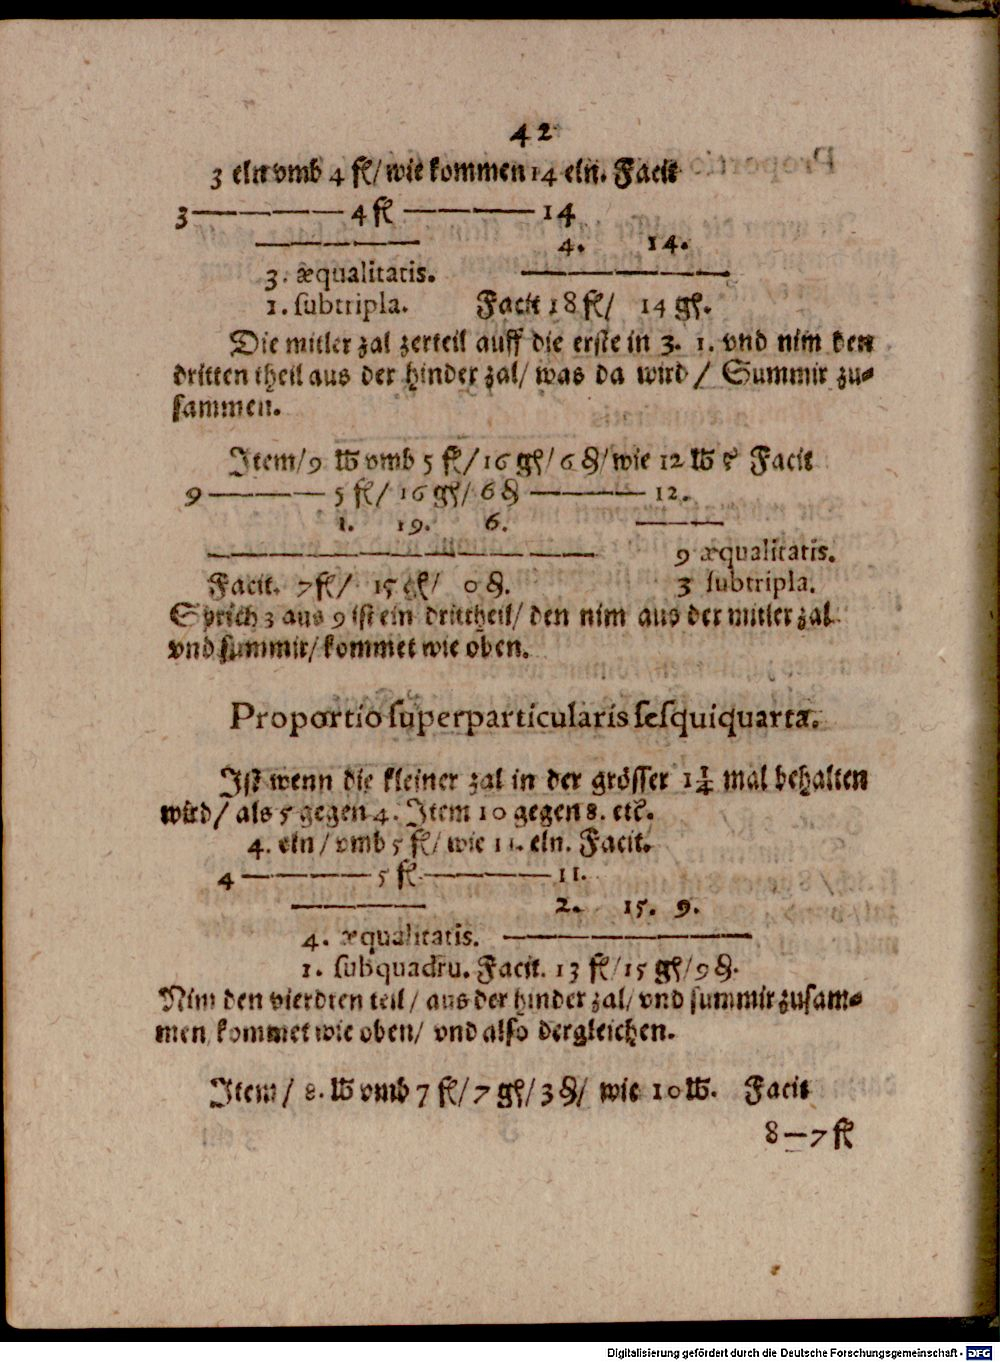 42
3 eln vmb 4 fl/ wie kommen 14 eln. Facit
3 ————— 4 fl ————— 14
4. 14.
3. æqualitatis.
1. ſubtripla. Facit 18 fl/ 14 gſ.
Die mitler zal zerteil auff die erſte in 3. 1. vnd nim den
dritten theil aus der hinder zal/ was da wird / Summir zu⸗
ſammen.
Item/ 9 ℔ vmb 5 fl/ 16 gſ/ 6 ₰/ wie 12 ℔ ? Facit
9 ————— 5 fl/ 16 gſ/ 6 ₰ ————— 12.
1. 19. 6.
9 æqualitatis.
Facit. 7 fl/ 15 gſ/ 0 ₰. 3 ſubtripla.
Sprich 3 aus 9 iſt ein dritttheil/ den nim aus der mitler zal
vnd ſummir/ kommet wie oben.
Proportio ſuperparticularis ſeſquiquarta.
Iſt wenn die kleiner zal in der gröſſer 1 1/4 mal behalten
wird/ als 5 gegen 4. Item 10 gegen 8. etc.
4. eln / vmb 5 fl/ wie 11. eln. Facit.
4 ————— 5 fl. ————— 11.
2. 15. 9.
4. æqualitatis.
1. ſubquadru. Facit. 13 fl/ 15 gſ/ 9 ₰.
Nim den vierdten teil / aus der hinder zal/ vnd ſummir zuſam⸗
men/ kommet wie oben/ vnd alſo dergleichen.
Item / 8. ℔ vmb 7 fl/ 7 gſ/ 3 ₰/ wie 10 ℔. Facit
8 — 7 fl
Digitalisierung gefördert durch die Deutsche Forschungsgemeinschaft - DFG